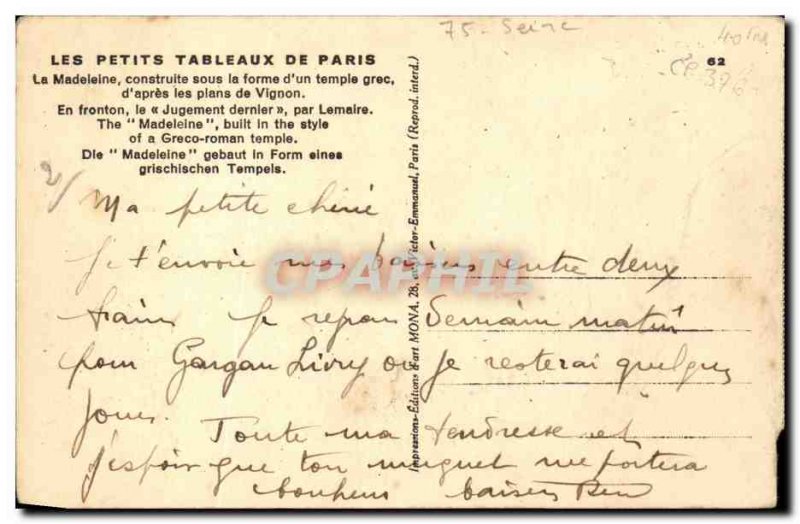 75 - Seine
LES PETITS TABLEAUX DE PARIS
62
La Madeleine, construite sous la forme d'un temple grec,
d'après les plans de Vignon.
En fronton, le « Jugement dernier », par Lemaire.
The " Madeleine ", built in the style
of a Greco-roman temple.
Die " Madeleine " gebaut in Form eines
grischischen Tempels.
Impressions-Éditions d'art MONA, 28, av. Victor-Emmanuel, Paris (Reprod. interd.)
2/
Ma petite chérie
Je t'envoie mes baisers entre deux
trains Je repars demain matin
pour Gargan Livry ou je resterai quelques
jours. Toute ma tendresse et
j'espoir que ton muguet me portera
bonheur baisers
CPAPHIL